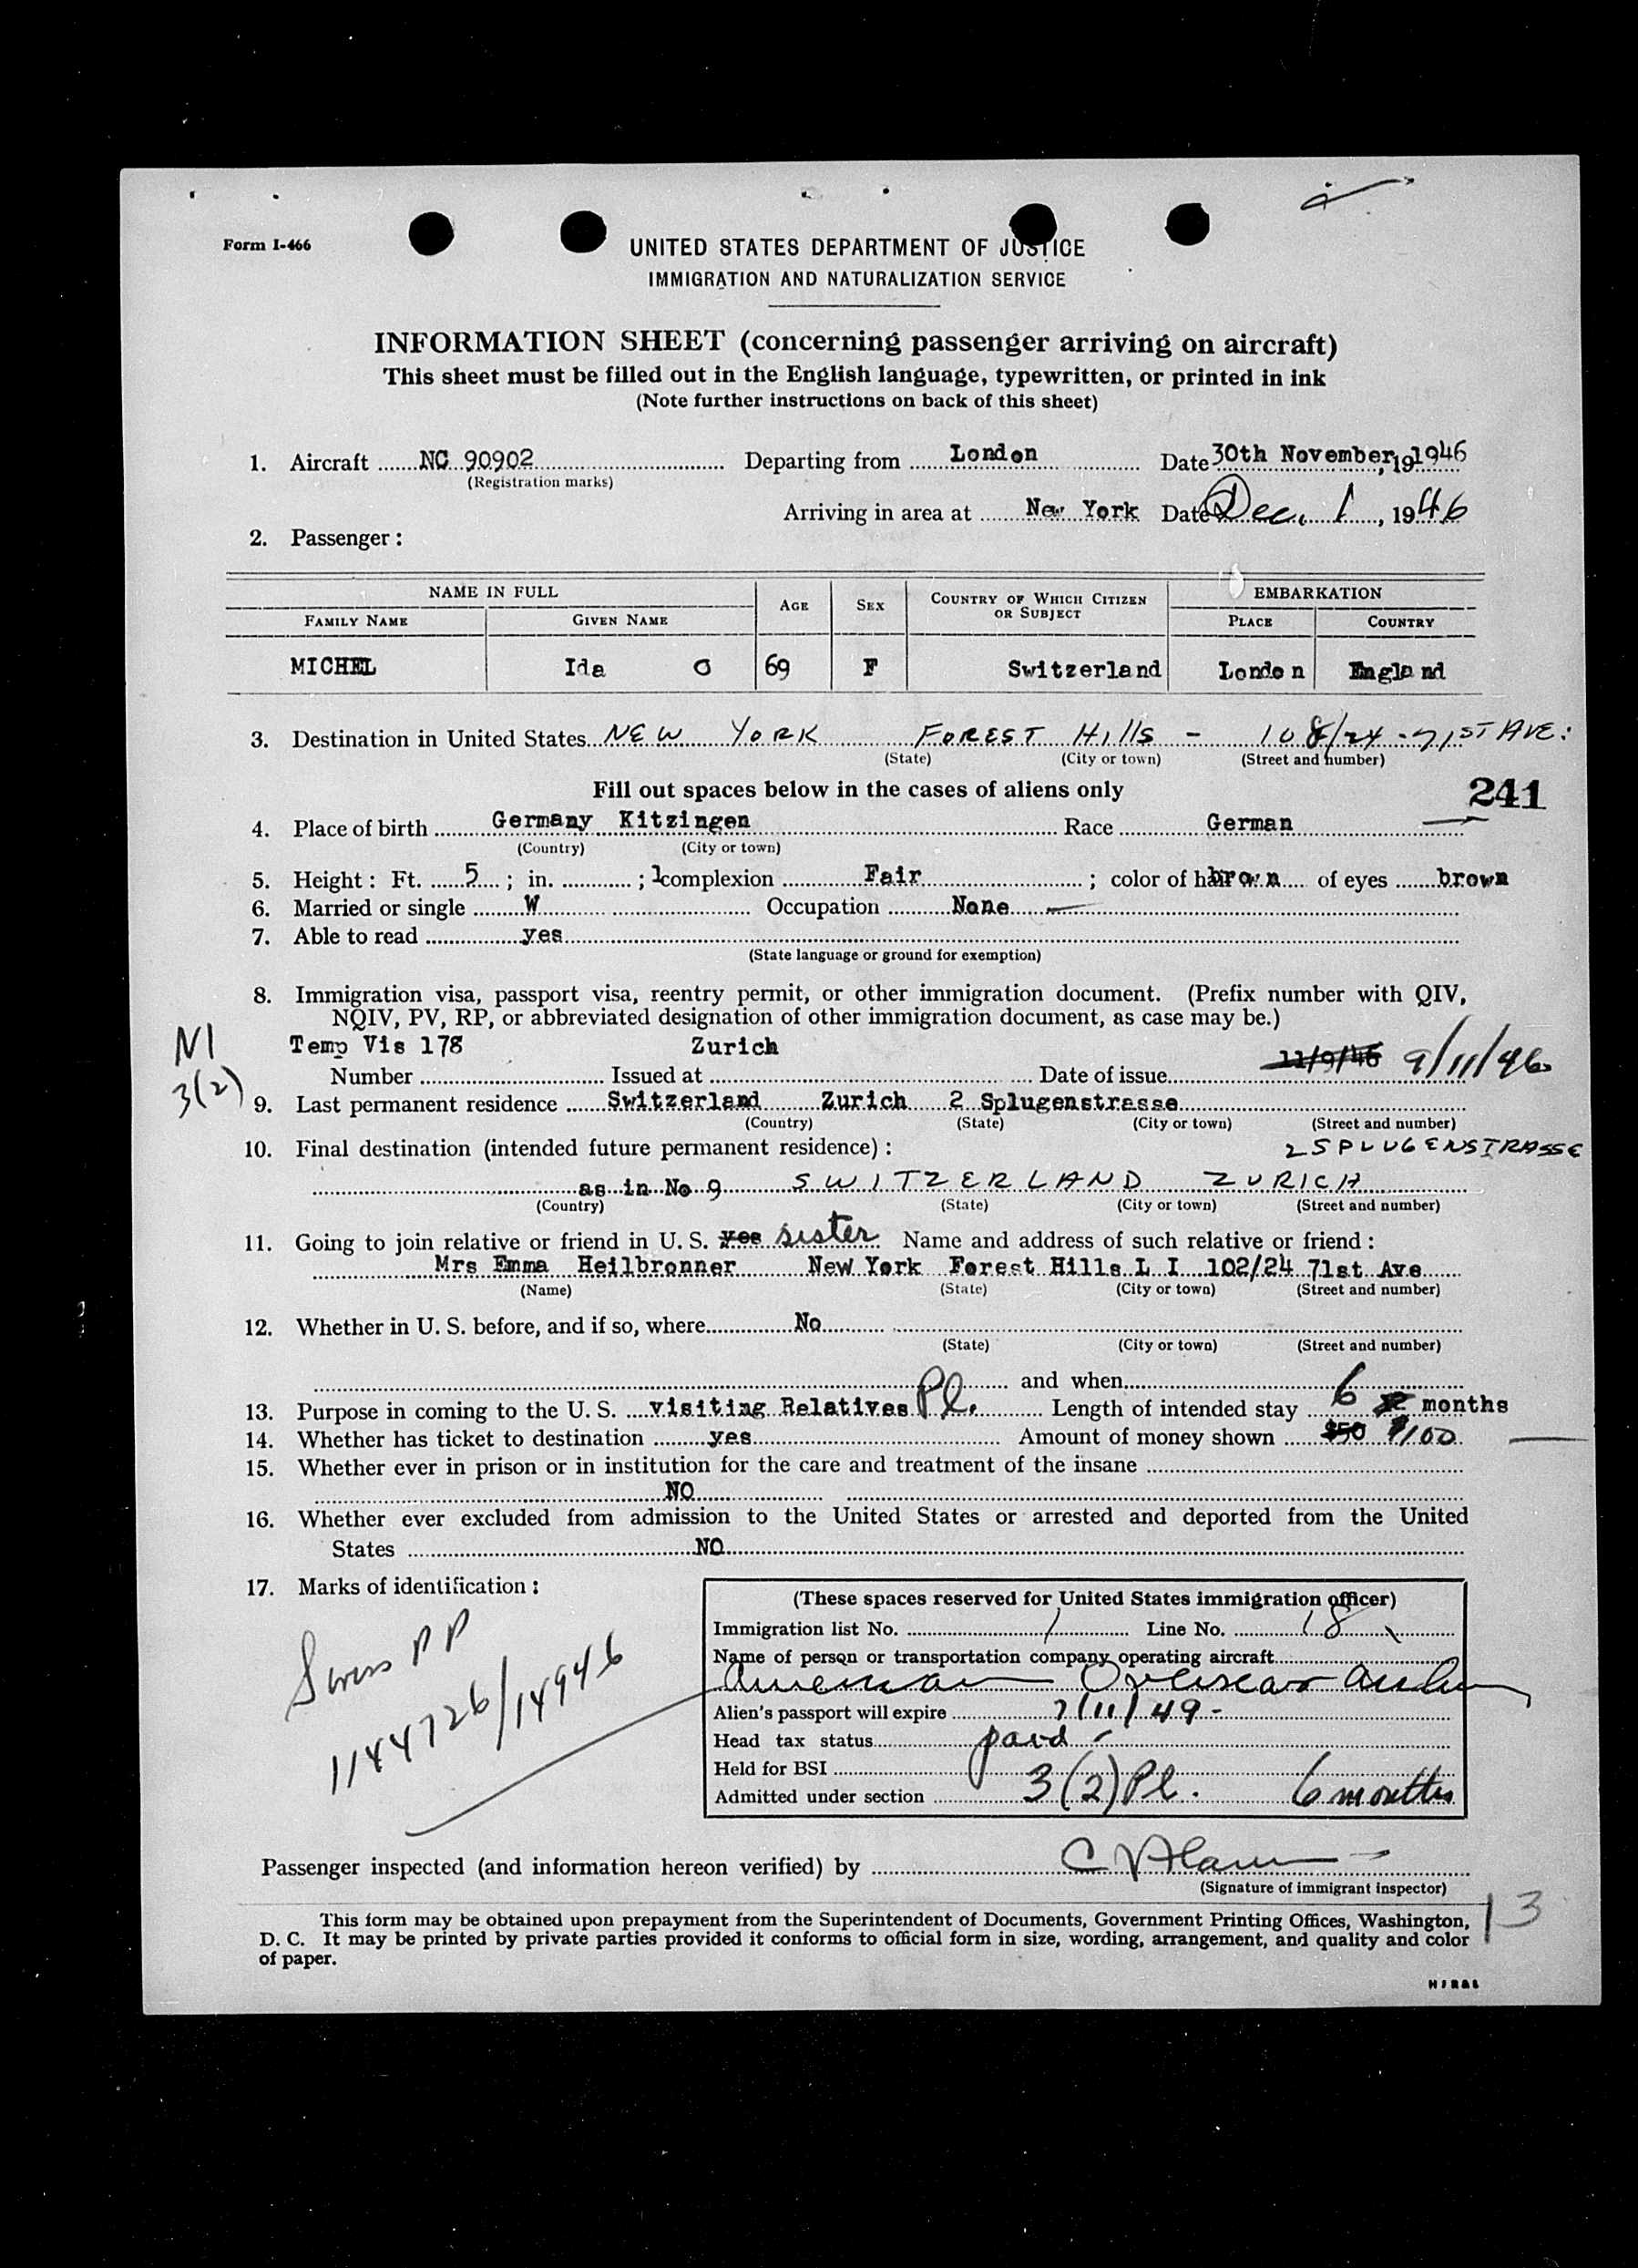 Form I-466
UNITED STATES DEPARTMENT OF JUSTICE
IMMIGRATION AND NATURALIZATION SERVICE
INFORMATION SHEET (concerning passenger arriving on aircraft)
This sheet must be filled out in the English language, typewritten, or printed in ink
(Note further instructions on back of this sheet)
1. Aircraft NC 90902 Departing from London Date 30th November, 191946
(Registration marks)
Arriving in area at New York Date Dec. 1, 1946
2. Passenger:
NAME IN FULL AGE SEX COUNTRY OF WHICH CITIZEN OR SUBJECT EMBARKATION
FAMILY NAME GIVEN NAME PLACE COUNTRY
MICHEL Ida O 69 F Switzerland London England
3. Destination in United States NEW YORK FOREST Hills - 108/24 - 71ST AVE:
(State) (City or town) (Street and number)
Fill out spaces below in the cases of aliens only
241
4. Place of birth Germany Kitzingen Race German
(Country) (City or town)
5. Height: Ft. 5; in. ; 1complexion Fair; color of hair brown of eyes brown
6. Married or single W Occupation None
7. Able to read yes
(State language or ground for exemption)
8. Immigration visa, passport visa, reentry permit, or other immigration document. (Prefix number with QIV,
NQIV, PV, RP, or abbreviated designation of other immigration document, as case may be.)
NI
3(2)
Temp Vis 178 Zurich 11/9/46 9/11/46
Number Issued at Date of issue
9. Last permanent residence Switzerland Zurich 2 Splugenstrasse
(Country) (State) (City or town) (Street and number)
10. Final destination (intended future permanent residence): 2 SPLUGENSTRASSE
as in No 9 SWITZERLAND ZURICH
(Country) (State) (City or town) (Street and number)
11. Going to join relative or friend in U. S. yes sister Name and address of such relative or friend:
Mrs Emma Heilbronner New York Forest Hills L I 102/24 71st Ave
(Name) (State) (City or town) (Street and number)
12. Whether in U. S. before, and if so, where No
(State) (City or town) (Street and number)
and when
13. Purpose in coming to the U. S. visiting Relatives Pl. Length of intended stay 6 months
14. Whether has ticket to destination yes Amount of money shown $50 $100
15. Whether ever in prison or in institution for the care and treatment of the insane
NO
16. Whether ever excluded from admission to the United States or arrested and deported from the United
States NO
17. Marks of identification:
Swiss PP
1144726/14946
(These spaces reserved for United States immigration officer)
Immigration list No. 1 Line No. 18
Name of person or transportation company operating aircraft
American Overseas
Alien's passport will expire 7/11/49 -
Head tax status paid -
Held for BSI
Admitted under section 3(2) Pl. 6 months
Passenger inspected (and information hereon verified) by
(Signature of immigrant inspector)
13
This form may be obtained upon prepayment from the Superintendent of Documents, Government Printing Offices, Washington,
D. C. It may be printed by private parties provided it conforms to official form in size, wording, arrangement, and quality and color
of paper.